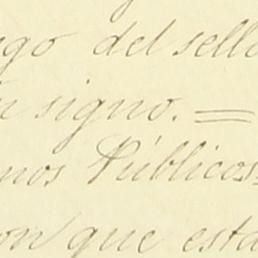 go del sello
signo. =
nos Públicos=
on que esta